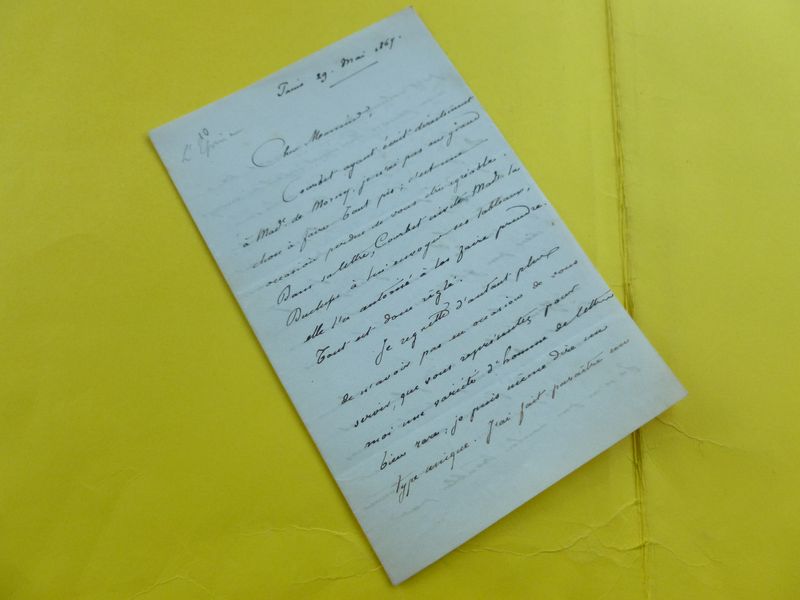 Paris 29. Mai 1867.
Cher Monsieur,
Courbet ayant écrit directement
à Made. de Morny, je n'ai pas eu grand
chose à faire. Tant pis; c'est une
occasion perdue de vous être agréable.
Dans sa lettre, Courbet invite Made. la
Duchesse à lui envoyer ses tableaux,
elle l'a autorisé à les faire prendre.
Tout est donc réglé.
Je regrette d'autant plus
de n'avoir pas eu occasion de vous
servir, que vous représentez pour
moi une variété d'homme de lettres
bien rare; je puis même dire un
type unique. J'ai fait paraître un